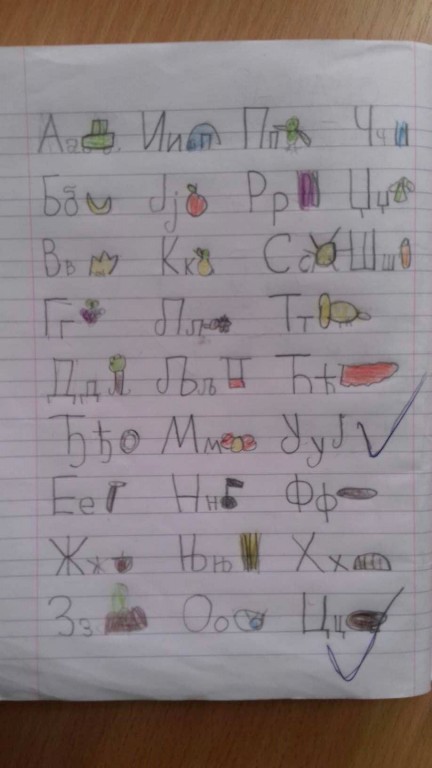 Аа Ии Пп Чч
Бб Јј Рр Џџ
Вв Кк Сс Шш
Гг Лл Тт
Дд Љљ Ћћ
Ђђ Мм Уу
Ее Нн Фф
Жж Њњ Хх
Зз Оо Цц